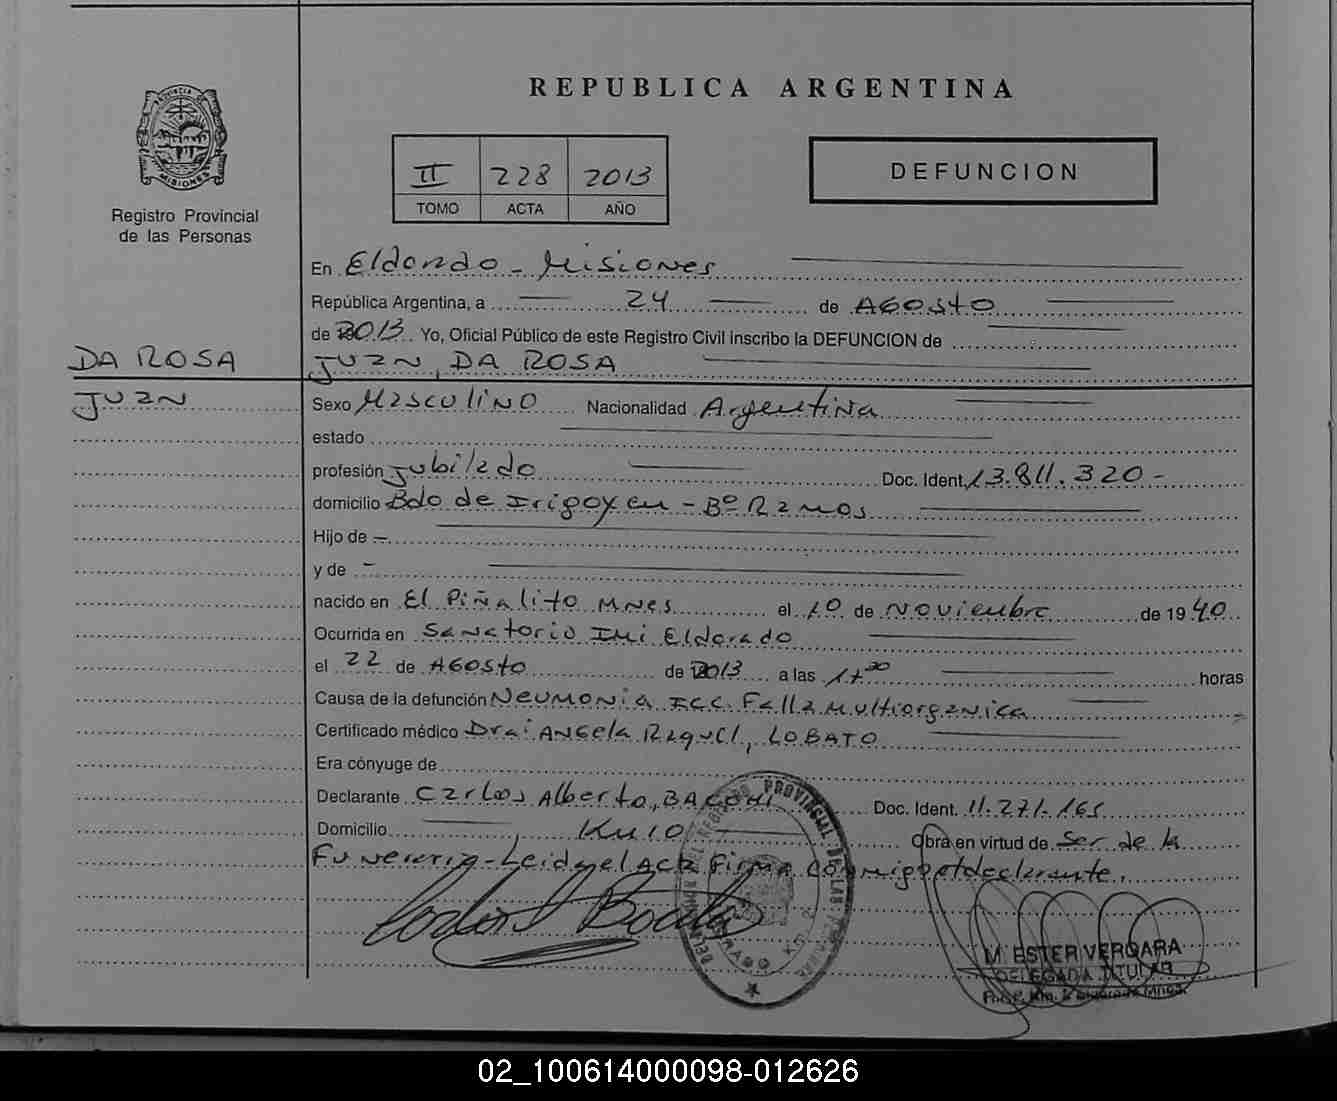 REPUBLICA ARGENTINA
PROVINCIA DE
MISIONES
Registro Provincial
de las Personas
II 228 2013
TOMO ACTA AÑO
DEFUNCION
En Eldorado - Misiones
República Argentina, a 24 de AGOSTO
de 2013 Yo, Oficial Público de este Registro Civil inscribo la DEFUNCION de
DA ROSA JUAN, DA ROSA
JUAN Sexo Masculino Nacionalidad Argentina
estado
profesión Jubilado Doc. Ident. 13.811.320-
domicilio Bdo de Irigoyen - Bº Ramos
Hijo de -
y de -
nacido en El Piñalito MNes el 10 de Noviembre de 1940
Ocurrida en Sanatorio Eldorado
el 22 de AGOSTO de 2013 a las horas
Causa de la defunción Neumonia ICC Falla Multiorganica
Certificado médico Dra: Angela Raquel, LOBATO
Era cónyuge de
Declarante Carlos Alberto, Doc. Ident. 11.271.165
Domicilio Km 10 Obra en virtud de Ser de la
Funeraria - Leida el Acta Firma Conmigo el declarante.
M. ESTER VERGARA
DELEGADA TITULAR
02_100614000098-012626